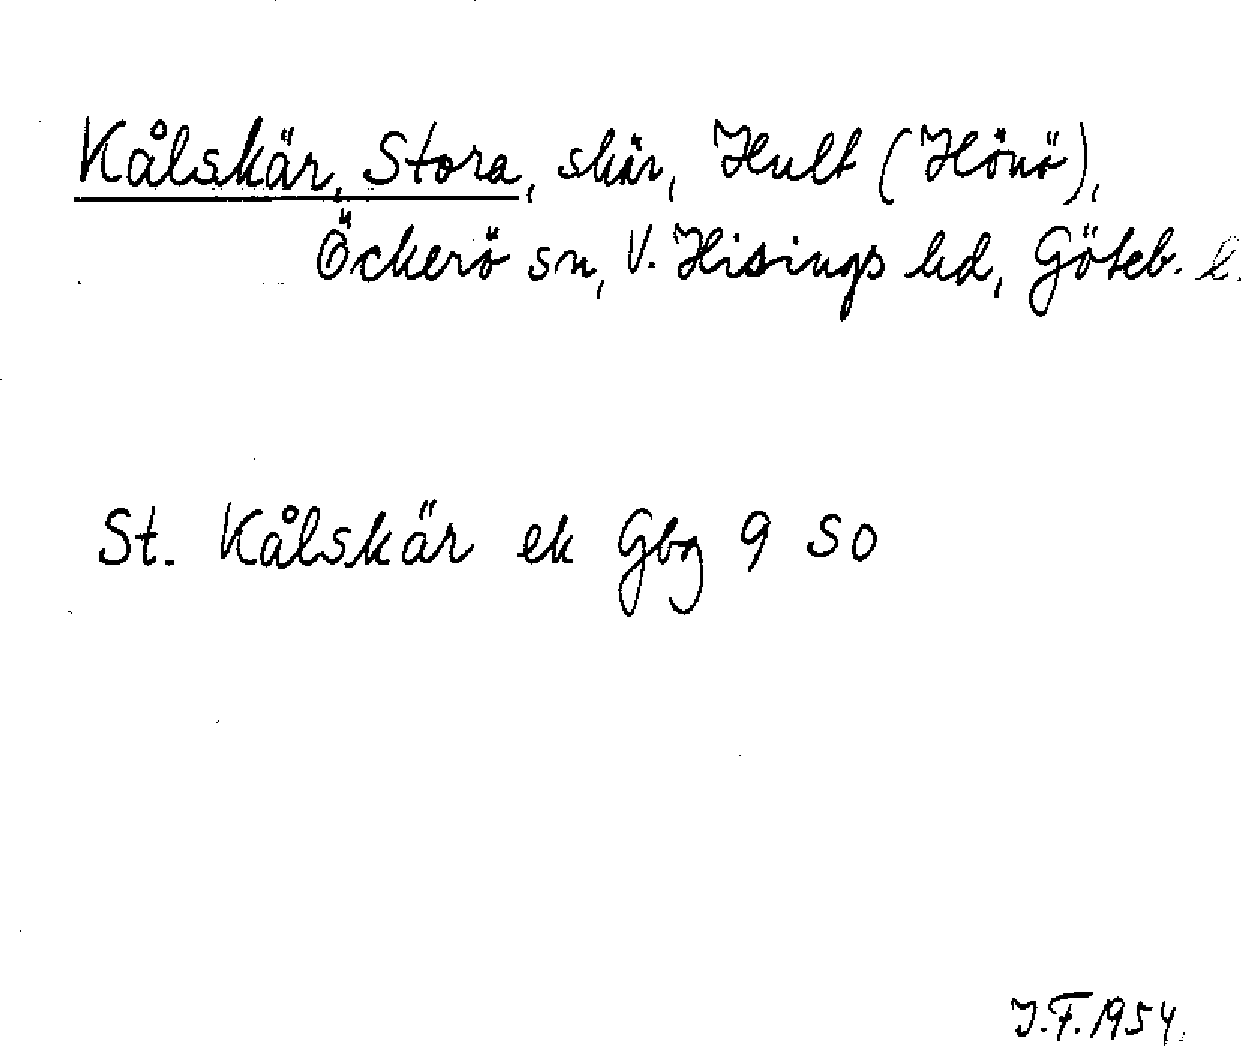 Kålskär, Stora, skär, Hult (Hönö),
Öckerö sn, V. Hisings hd, Göteb. l.
St. Kålskär ek Gbg 9 SO
J.F. 1954.